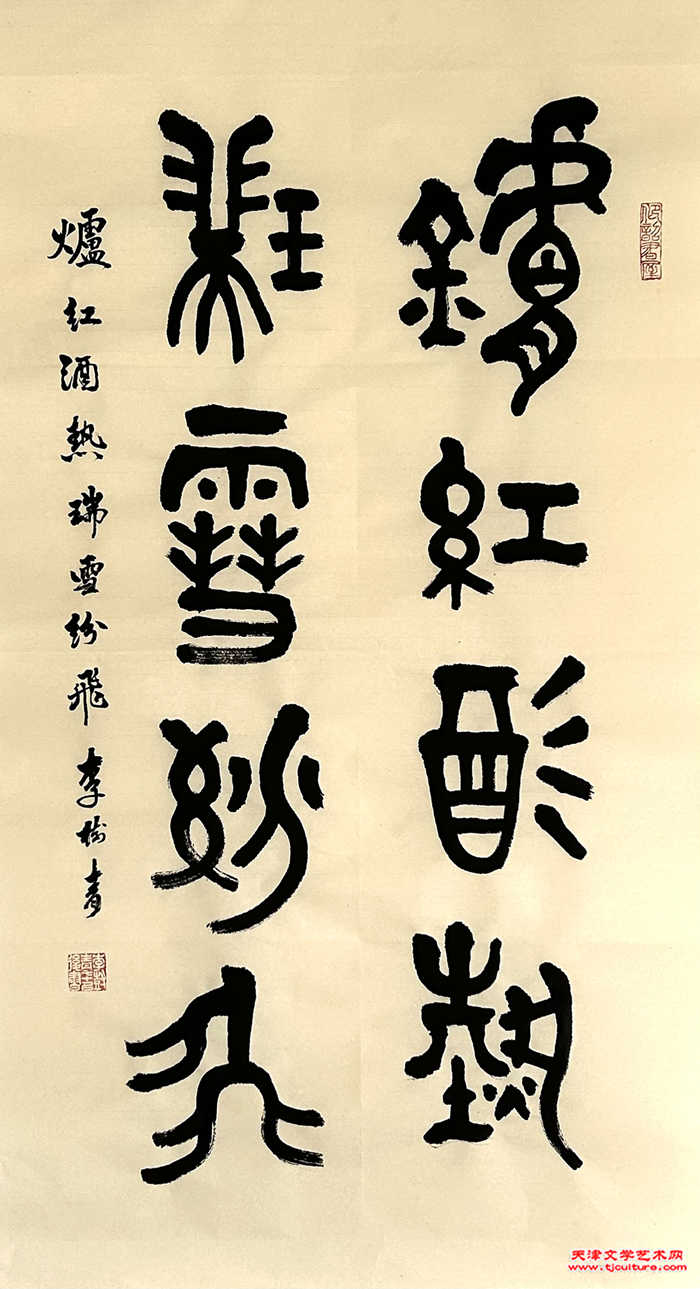 鑪紅酒熱
瑞雪紛飛
爐红酒熱瑞雪纷飛李樹青
天津文学艺术网
www.tjculture.com